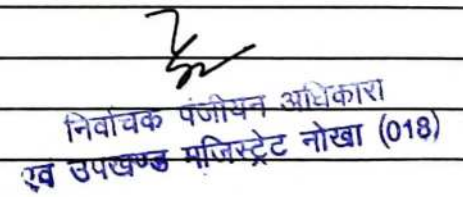 निर्वाचक पंजीयन अधिकारी
एवं उपखण्ड मजिस्ट्रेट नोखा (018)